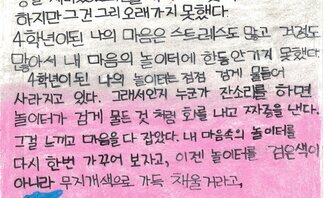 하지만 그건 그리 오래가지 못했다.
4학년이된 나의 마음은 스트레스도 많고 걱정도
많아서 내 마음의 놀이터에 한동안 가지 못했다.
4학년이 된 나의 놀이터는 점점 검게 물들어
사라지고 있다. 그래서인지 누군가 잔소리를 하면
놀이터가 검게 물든 것 처럼 화를 내고 짜증을 낸다.
그걸 느끼고 마음을 다 잡았다. 내 마음속의 놀이터를
다시 한번 가꾸어 보자고, 이젠 놀이터를 검은색이
아니라 무지개색으로 가득 채울거라고,